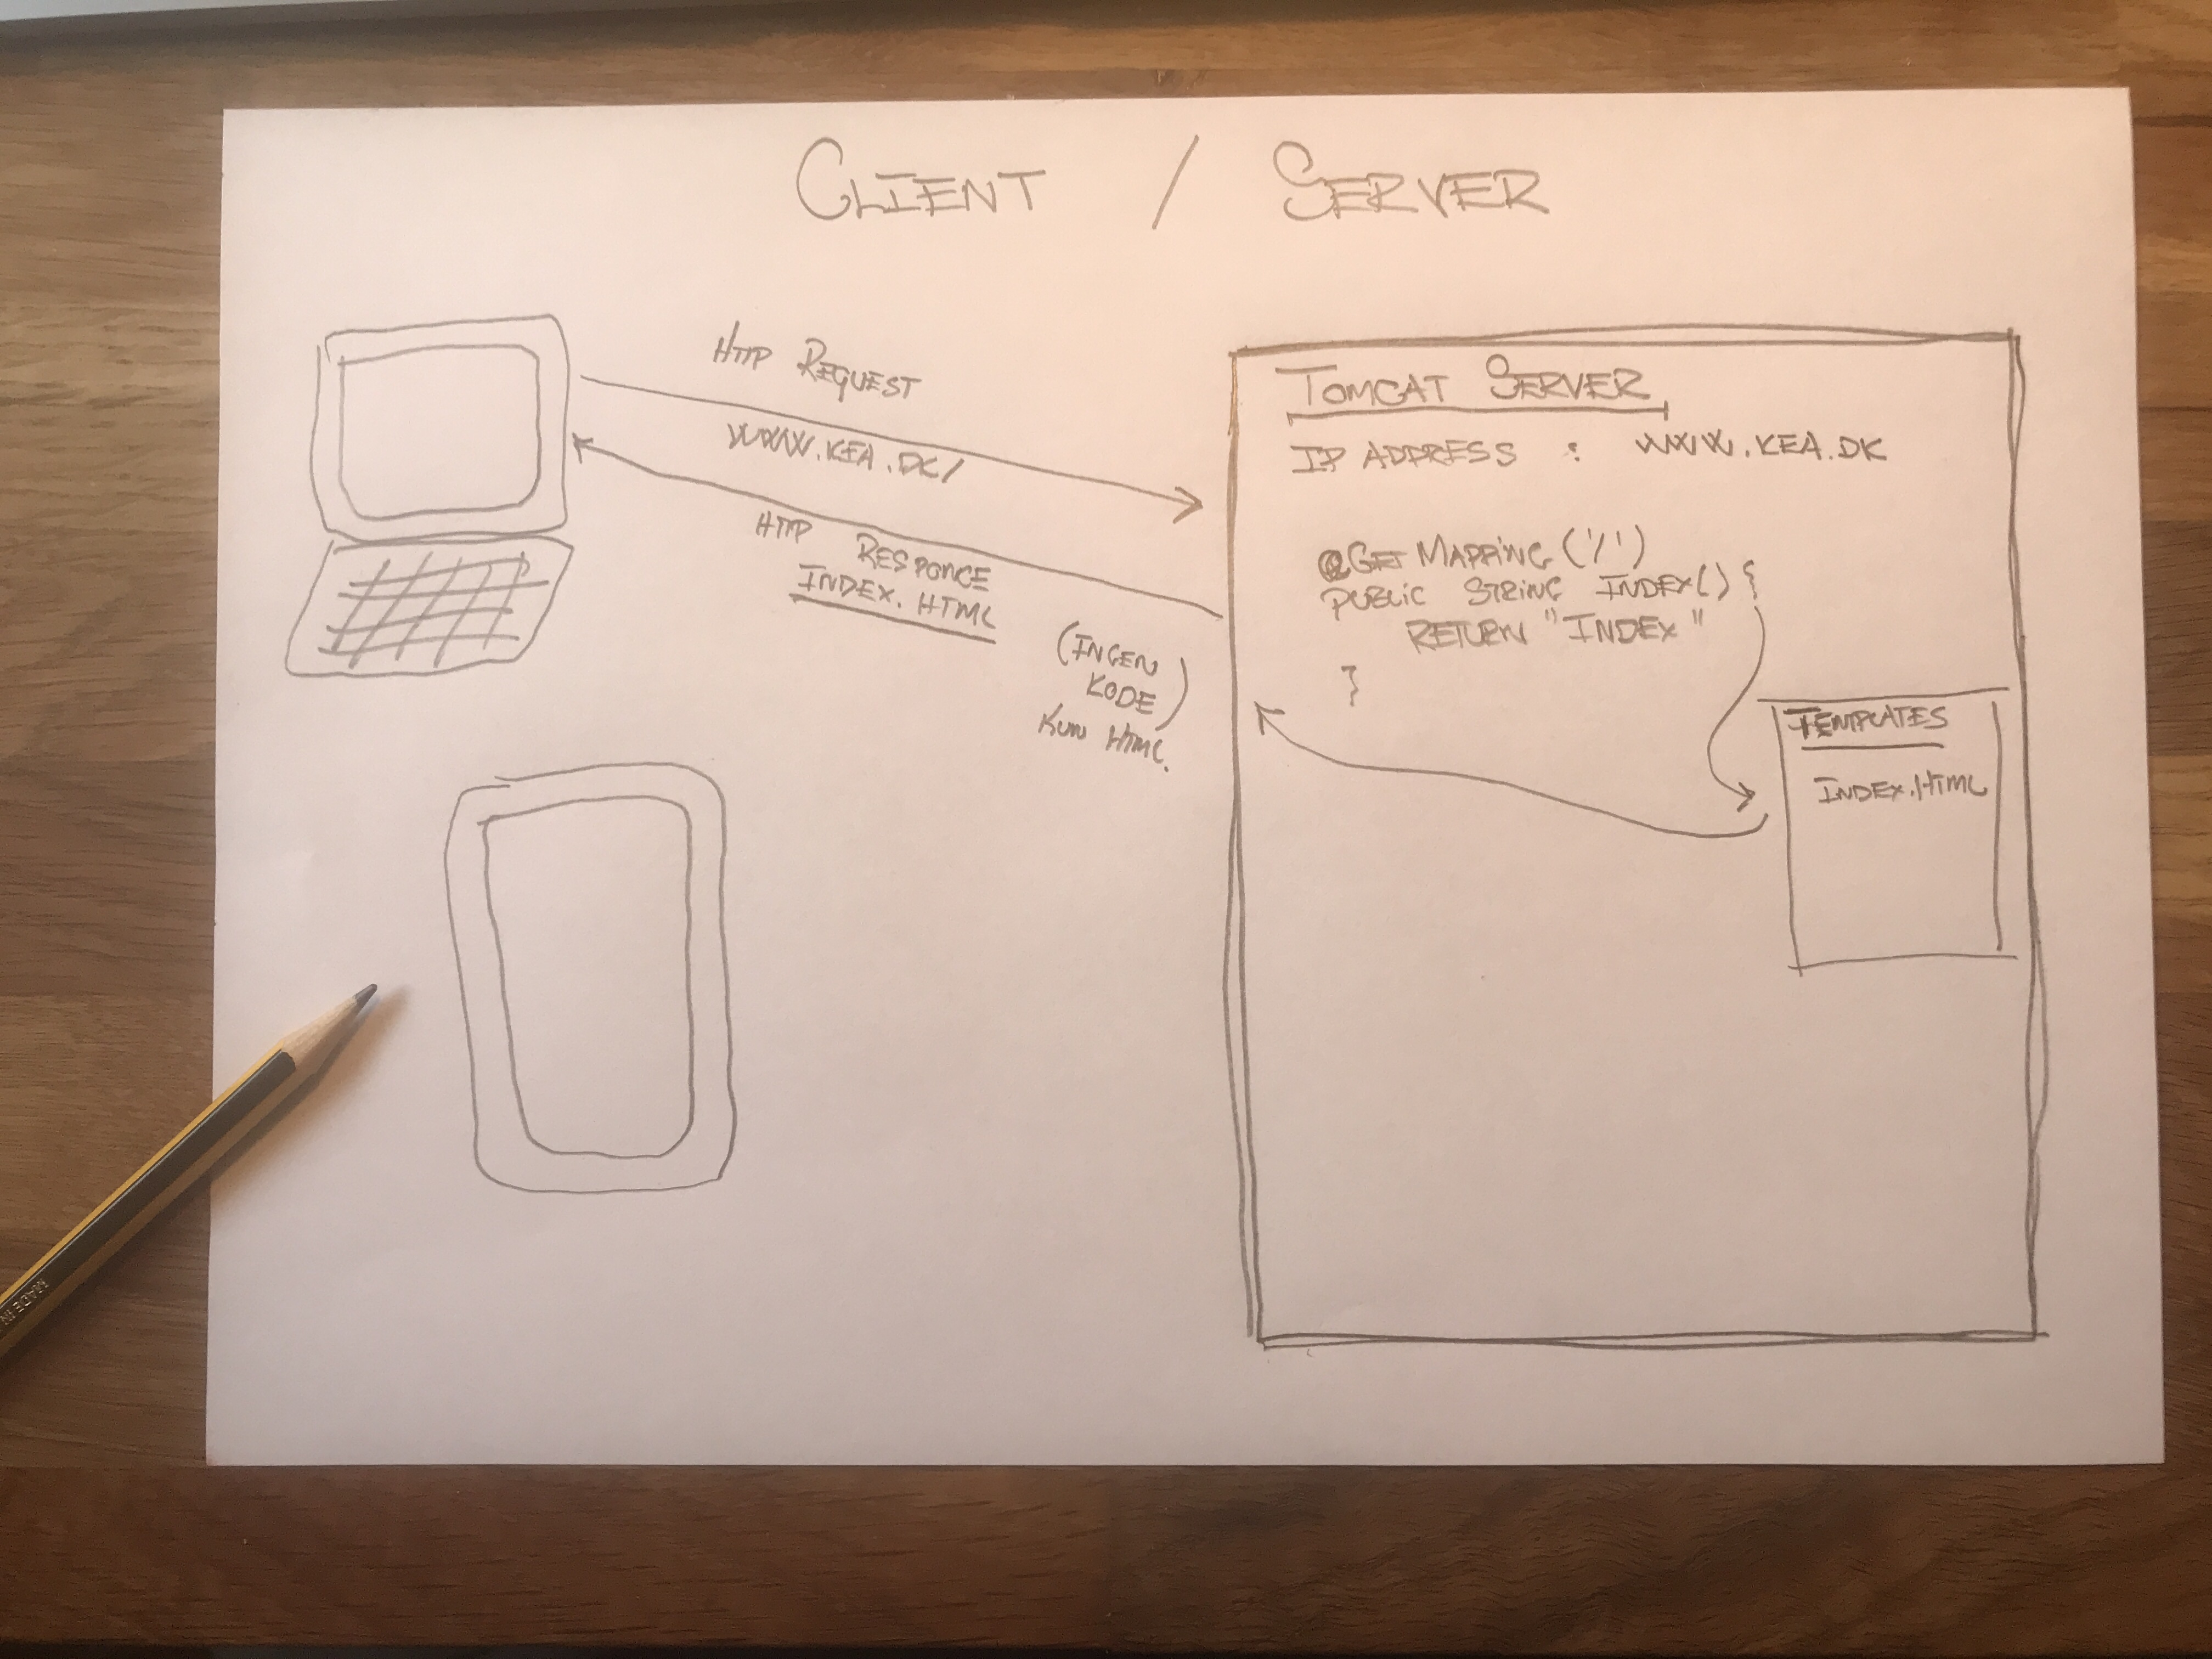 CLIENT / SERVER
HTTP REQUEST
WWW.KEA.DK/
HTTP RESPONCE
INDEX.HTML
(INGEN
KODE)
KUN HTML.
TOMCAT SERVER
IP ADDRESS : WWW.KEA.DK
@GETMAPPING('/')
PUBLIC STRING INDEX() {
RETURN "INDEX"
}
TEMPLATES
INDEX.HTML
MADE IN